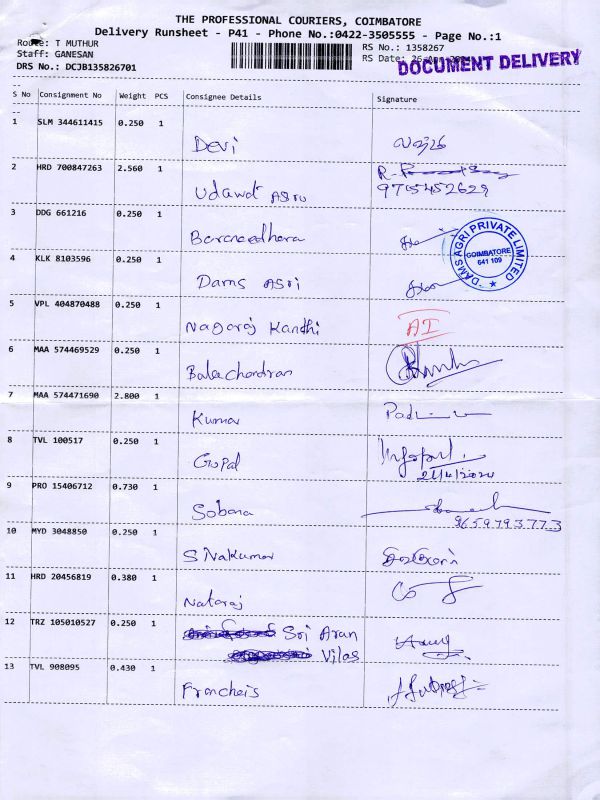 THE PROFESSIONAL COURIERS, COIMBATORE
Delivery Runsheet - P41 - Phone No.:0422-3505555 - Page No.:1
Route: T MUTHUR
RS No.: 1358267
Staff: GANESAN
RS Date: 26
DOCUMENT DELIVERY
DRS No.: DCJB135826701
S No Consignment No Weight PCS Consignee Details Signature
1 SLM 344611415 0.250 1 Devi
2 HRD 700847263 2.560 1 Udawat Agro R.
9715452629
3 DDG 661216 0.250 1
DAMS AGRI PRIVATE LIMITED
COIMBATORE
641 109
4 KLK 8103596 0.250 1 Dams Agri
5 VPL 404870488 0.250 1 Nagaraj Kandhi AI
6 MAA 574469529 0.250 1 Balachandran
7 MAA 574471690 2.800 1 Kumar
8 TVL 100517 0.250 1 Gopal
9 PRO 15406712 0.730 1 Sobana
9659793773
10 MYD 3048850 0.250 1 Sivakumar
11 HRD 20456819 0.380 1 Nataraj
12 TRZ 105010527 0.250 1 Sri Aran
Vilas
13 TVL 908095 0.430 1 Francheis